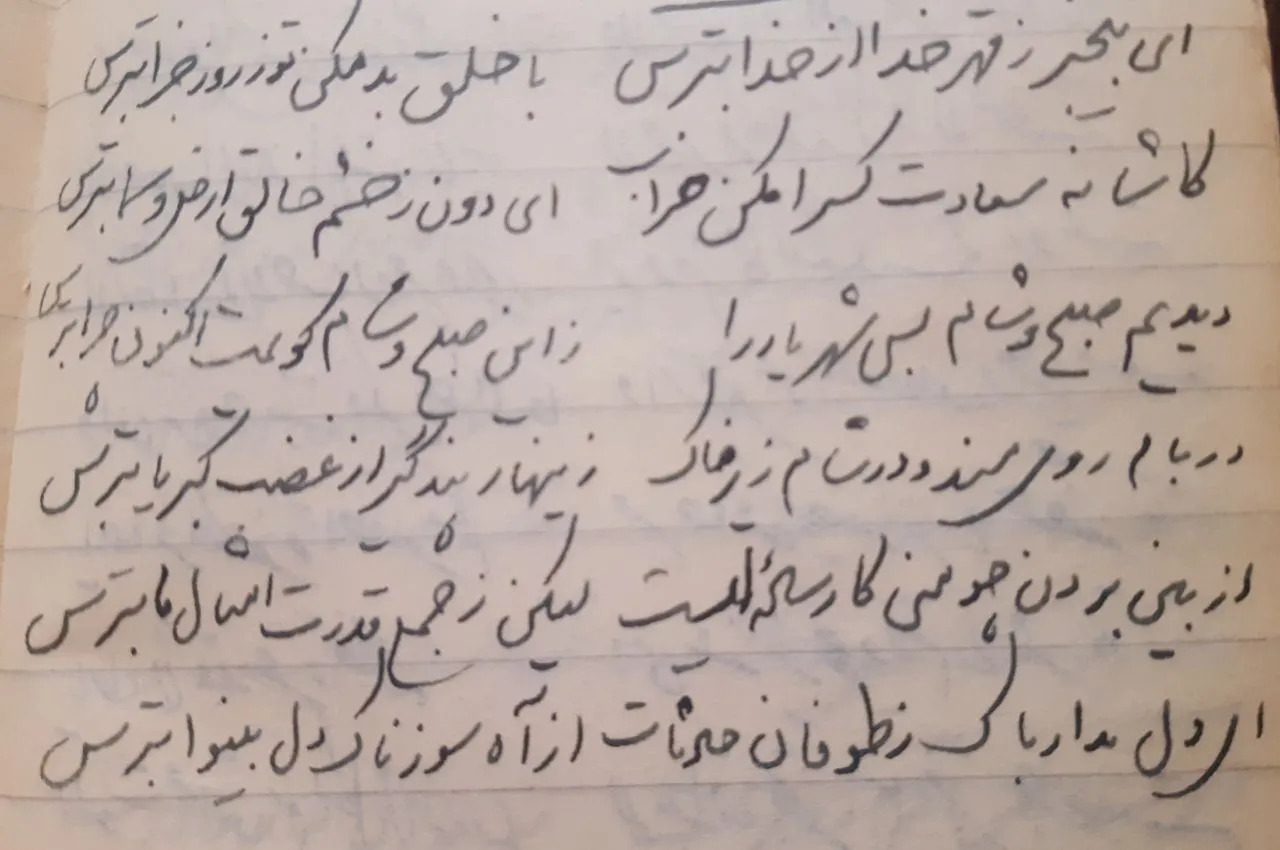 ای بیخبر ز قهر خدا از خدا بترس با خلق بد مکن تو ز روز جزا بترس
کاشانه سعادت کس را مکن خراب ای دون ز خشم خالق ارض و سما بترس
دیدیم صبح و شام بسی شهریار را ز این صبح و شام اکنون چرا
در بام روی مسند و در شام زیر خاک زینهار بنده گر از غضب کبریا بترس
از بین بردن چو منی کار سهل لیکن ز جمع قدرت امثال ما بترس
ای دل مدار باک ز طوفان حادثات از آه سوزناک دل بینوا بترس